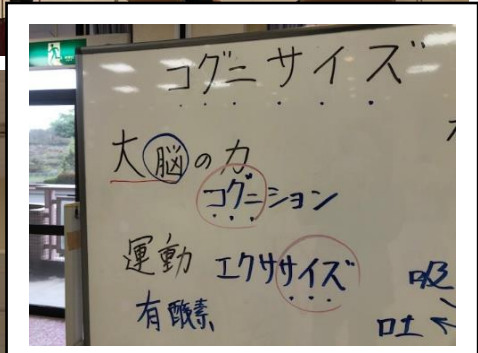 コグニサイズ
大脳の力
コグニション
運動 エクササイズ
有酸素
吸
吐